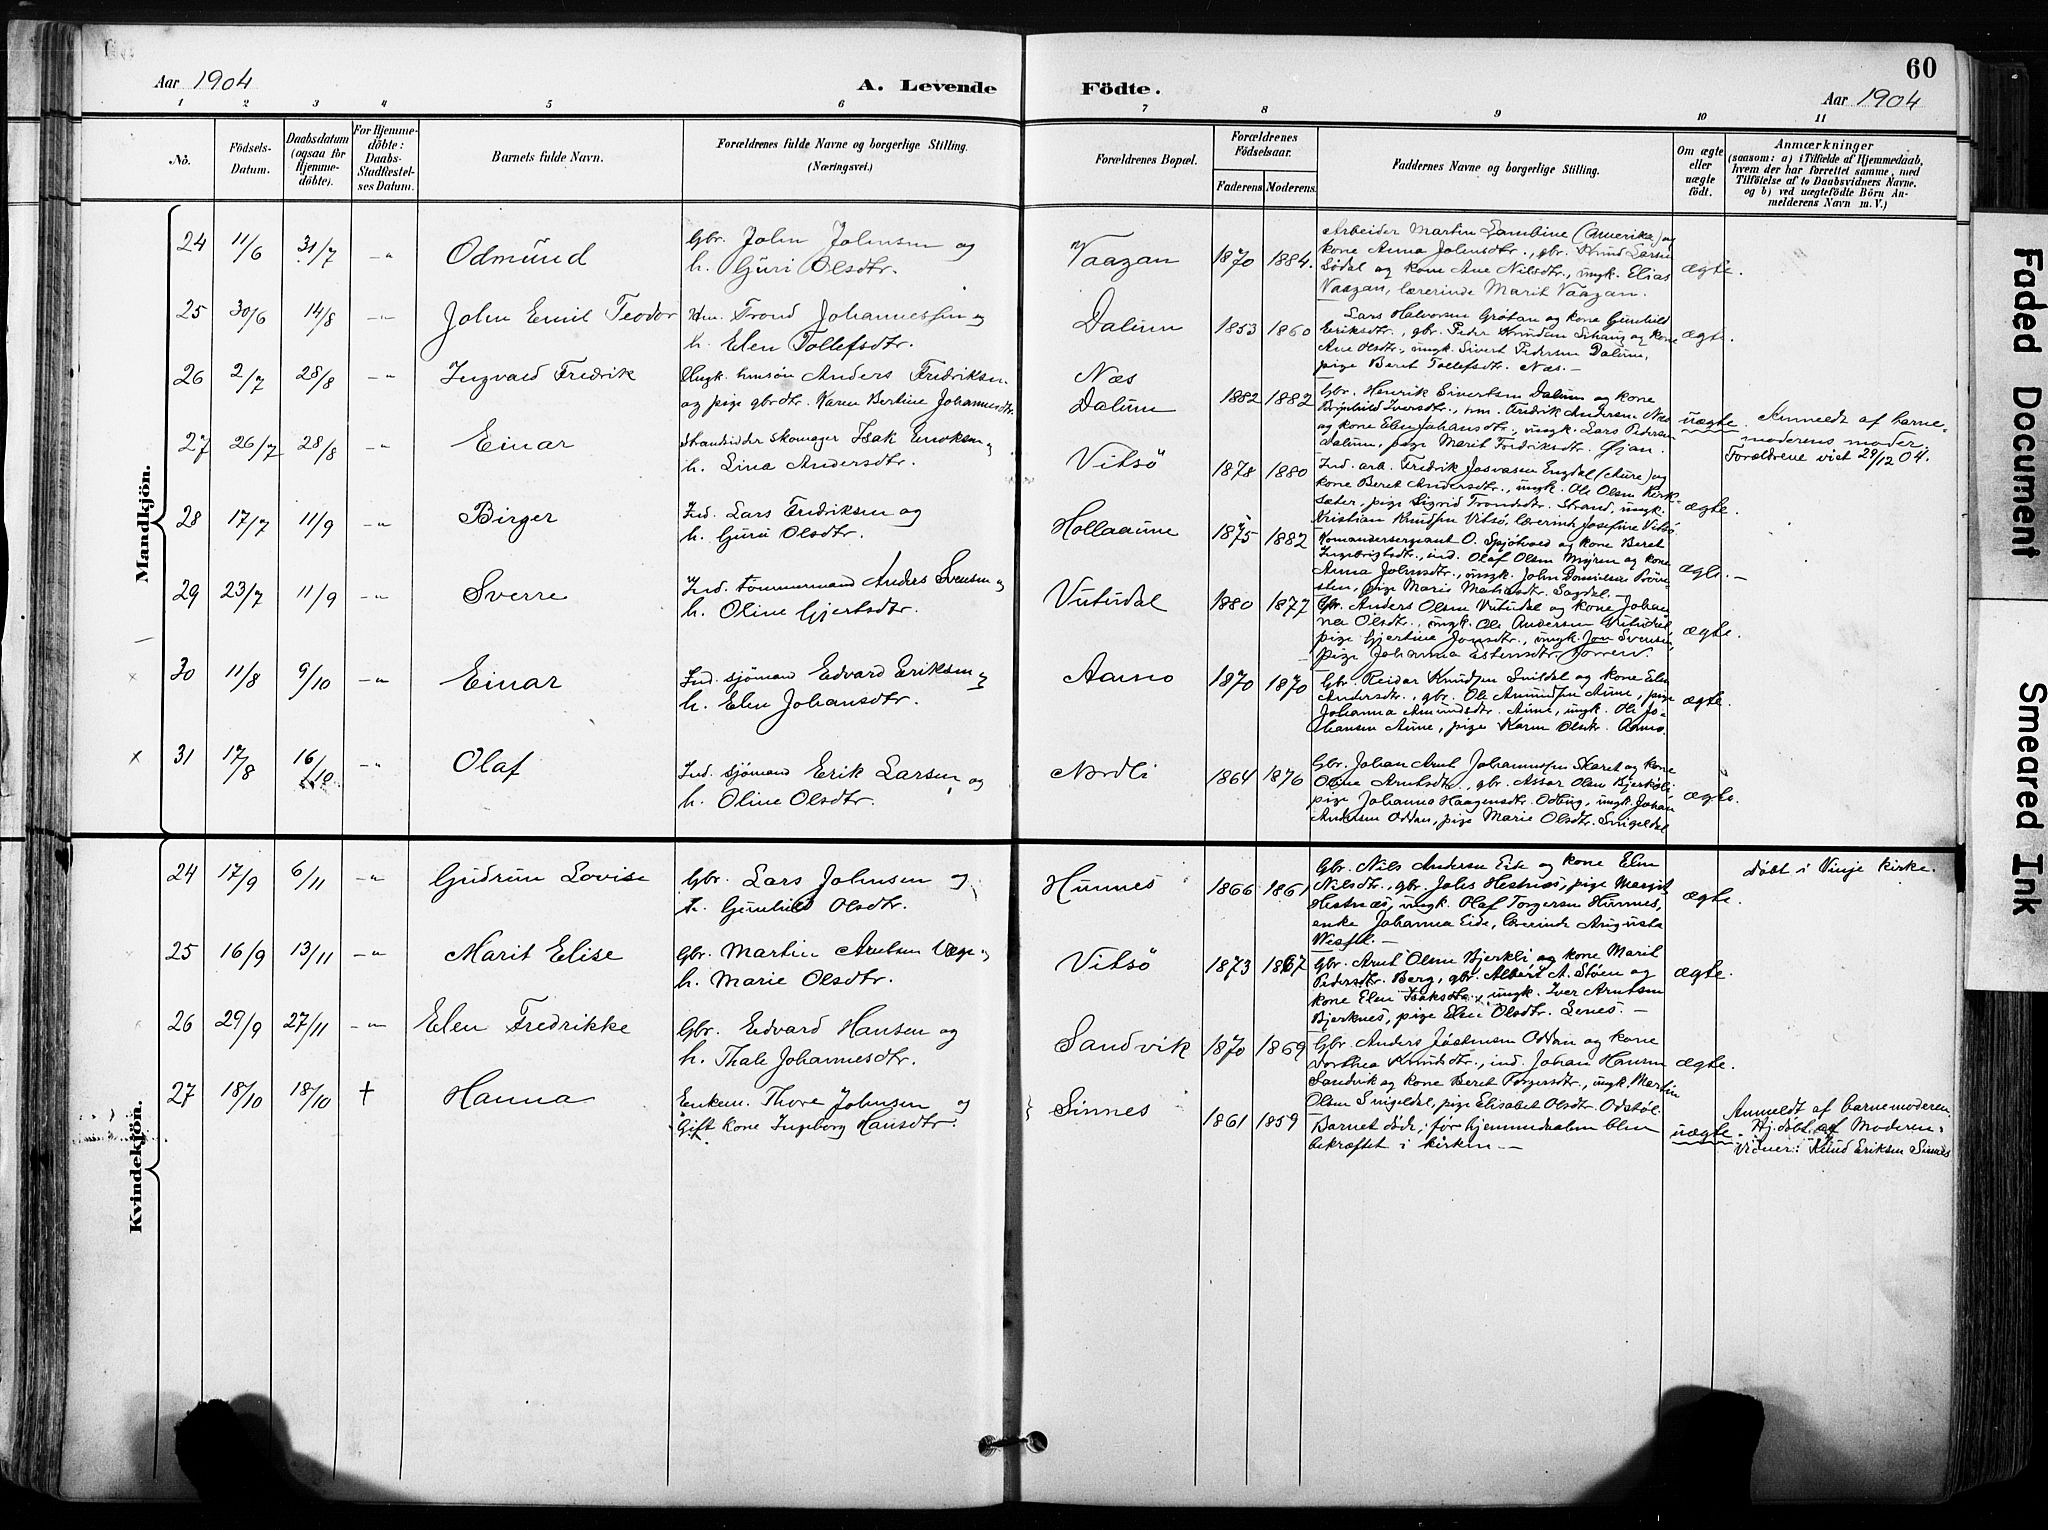 60
Aar 1904
A. Levende
Födte.
Aar 1904
1 2 3 4 5 6 7 8 9 10 11
No.
Födsels-
Datum.
Daabsdatum
(ogsaa for
Hjemme-
döbte).
For Hjemme-
döbte:
Daabs-
Stadfæstel-
ses Datum.
Barnets fulde Navn.
Forældrenes fulde Navne og borgerlige Stilling.
(Næringsvei.)
Forældrenes Bopæl.
Forældrenes
Födselsaar.
Faderens.
Moderens.
Faddernes Navne og borgerlige Stilling.
Om ægte
eller
uægte
födt.
Anmærkninger
(saasom: a) i Tilfælde af Hjemmedaab,
hvem der har forrettet samme, med
Tilföielse af to Daabsvidners Navne,
og b) ved uægtefödte Börn An-
melderens Navn m. V.)
Mandkjön.
24 11/6 31/7 -"- Odmund
Gbr. John Johnsen og
h. Guri Olsdtr.
Vaagan 1870 1884.
Arbeider Martin Lambine (Amerika) og
kone Anna Johnsdtr., gbr. Knud Larsen
Södal og kone Ane Nilsdtr., ungk. Elias
Vaagan, lærerinde Marit Vaagan.
ægte.
25 30/6 14/8 -"- John Emil Teodor
Hm. Trond Johannessen og
h. Elen Tollefsdtr.
Dalum 1853 1860
Lars Halvorsen Grötan og kone Gunhild
Eriksdtr., gbr. Peder Knudsen Sihaug og kone
Ane Olsdtr., ungk. Sivert Pedersen Dalum,
pige Beret Tollefsdtr. Næs.-
ægte.
26 2/7 28/8 -"- Ingvald Fredrik
Ungk. hmsön Anders Fredriksen
og pige gbrdtr. Karen Bertine Johannesdtr.
Næs
Dalum
1882 1882
Gbr. Henrik Sivertsen Dalum og kone
Brynhild Iversdtr., hm. Fredrik Andersen Næs
og kone Elen Johansdtr., ungk. Lars Pedersen
Dalum, pige Marit Fredriksdtr. Øian.
uægte.
Anmeldt af barne-
moderens moder.
Forældrene viet 29/12 04.
27 26/7 28/8 -"- Einar
Strandsidder skomager Isak Enoksen og
h. Lina Andersdtr.
Vitsö 1878 1880
Ind. arb. Fredrik Josvasen Engdal (Aure) og
kone Beret Andersdtr., ungk. Ole Olsen Kirk-
sæter, pige Sigrid Trondsdtr. Strand, ungk.
Kristian Knudsen Vitsö, lærerinde Josefine Vitsö.
ægte.
28 17/7 11/9 -"- Birger
Ind. Lars Fredriksen og
h. Guri Olsdtr.
Hollaaune 1875 1882
Komandersergeant O. Spjötvold og kone Beret
Ingebrigtsdtr., ind. Olaf Olsen Myren og kone
Anna Johnsdtr., ungk. John
pige Marie Sagdal.-
ægte.-
29 23/7 11/9 -"- Sverre
Ind. tömmermand Anders Svensen og
h. Oline Gjertsdtr.
Vutudal 1880 1877
Gbr. Anders Olsen Vutudal og kone Johan
na Olsdtr., ungk. Ole Andersen Vutudal,
pige Gjertine Jonsdtr., ungk. Jon Svensen,
pige Johanna Estensdtr.
ægte.
× 30 11/8 9/10 -"- Einar
Ind. sjömand Edvard Eriksen og
h. Elen Johansdtr.
Aamo 1870 1870
Gbr. Reidar Knudsen Snildal og kone Elen
Andersdtr., gbr. Ole Amundsen Aune, pige
Johanna Amundsdtr. Aune, ungk. Ole Jo-
hansen Aune, pige Karen Olsdtr. Aamo.
ægte.
× 31 17/8 16/10 -"- Olaf
Ind. sjömand Erik Larsen og
h. Oline Olsdtr.
Nordli 1864 1876
Gbr. Johan Arnt Johannessen Skaret og kone
Oline Arntsdtr., gbr. Assar Olsen Bjerköli
pige Johanna Haagensdtr. Odbug, ungk. Johan
Andersen Oddan, pige Marie Olsdtr. Singeldal
ægte.
Kvindekjön.
24 17/9 6/11 -"- Gudrun Lovise
Gbr. Lars Johnsen og
h. Gunhild Olsdtr.
Hunnes 1866 1861
Gbr. Nils Andersen Eide og kone Elen
Nilsdtr., gbr. Johs Hestnæs, pige Margit
Hestnæs, ungk. Olaf Torgersen Hunnes,
enke Johanna Eide, lærerinde Augusta
ægte.
döbt i Vinje kirke.
25 16/9 13/11 -"- Marit Elise
Gbr. Martin Arntsen Væge og
h. Marie Olsdtr.
Vitsö 1873 1867
Gbr. Arnt Olsen Bjerkli og kone Marit
Pedersdtr. Berg, gbr. Albert A. Stöen og
kone Elen Isaksdtr., ungk. Iver Arntsen
Bjerknes, pige Elen Olsdtr. Lenes.-
ægte.
26 29/9 27/11 -"- Elen Fredrikke
Gbr. Edvard Hansen og
h. Thale Johannesdtr.
Sandvik 1870 1869
Gbr. Anders Jostensen Oddan og kone
Dorthea Knudsdtr., ind. Johan Hansen
Sandvik og kone Beret Torgersdtr., ungk. Martin
Olsen Singeldal, pige Elisabet Olsdtr. Odstöl.
ægte.
27 18/10 18/10 † Hanna
Enkem. Thore Johnsen og
Gift kone Ingeborg Hansdtr.
Sinnes 1861 1859
Barnet döde, för hjemmedaaben blev
bekræftet i kirken.-
uægte.
Anmeldt af barnemoderen.
Hj. döbt af Moderen.-
Vidner: Knud Eriksen Sinnes
Faded Document
Smeared Ink